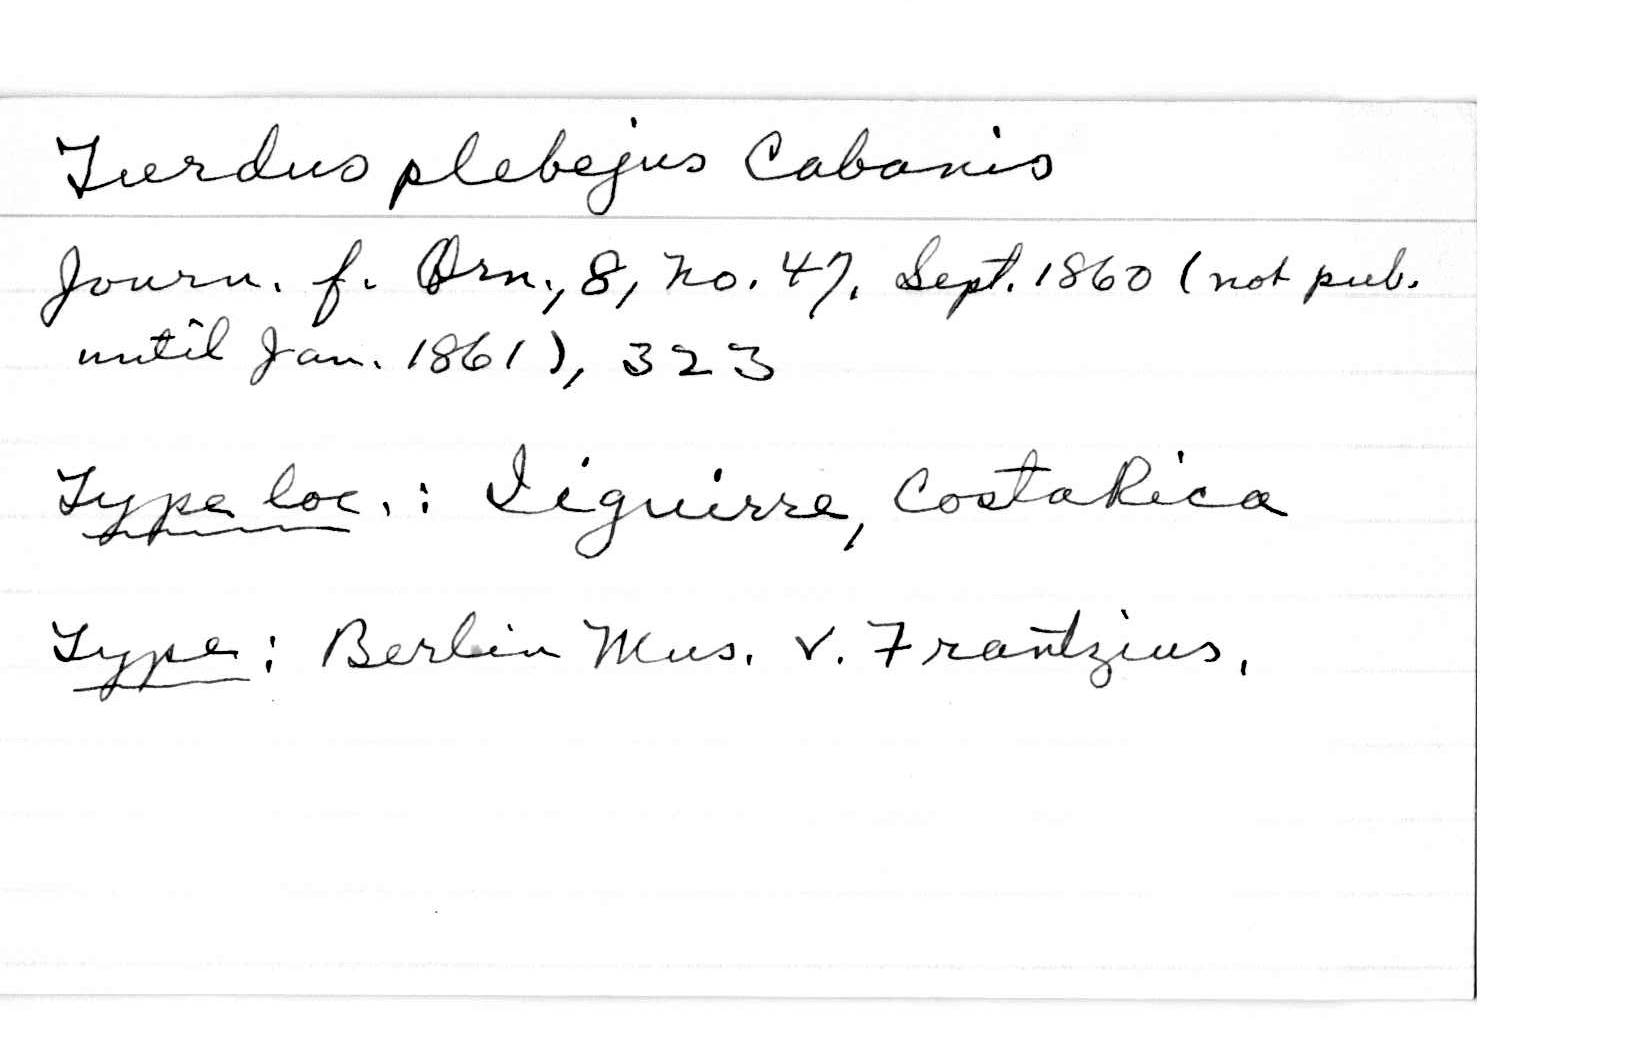 Turdus plebejus Cabanis
Journ. f. Orn., 8, no. 47, Sept. 1860 (not pub.
until Jan. 1861), 323
Type loc.: Iiguirre, Costa Rica
Type: Berlin Mus. v. Frantzius.